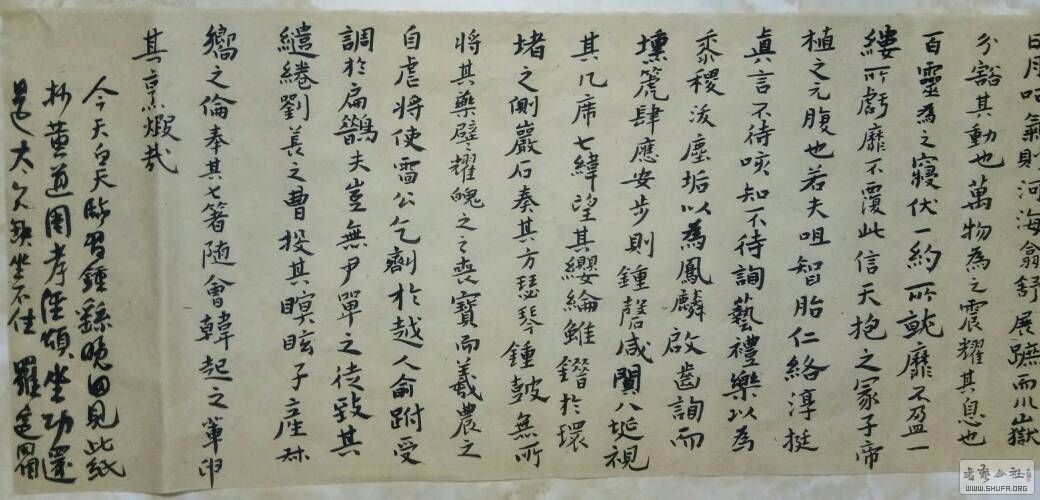 日月呼氣則河海翕舒展蹠而川嶽
分豁其動也萬物為之震耀其息也
百靈為之寢伏一約所就靡不盈一
縷所虧靡不覆此信天抱之冢子帝
植之元腹也若夫咀智胎仁絡淳挺
真言不待咳知不待詢藝禮樂以為
黍稷泼塵垢以為鳳麟啟齒詢而
壎篪肆應安步則鍾磬咸闐八埏視
其几席七緯望其纓綸雖鐕於環
堵之側巖石奏其方瑟琴鍾皷無所
將其藥壁耀魄之喪寶而羲農之
自虐將使雷公乞劑於越人俞跗受
調於扁鵲夫豈無尹單之徒致其
繾綣劉萇之曹投其瞑眩子產
嚮之倫奉其匕箸随會韓起之輩
其烹煆哉
今天白天臨習鍾繇晚回見此紙
抄黃道周孝經頌坐功還
是太久坐不住 羅
書藝公社
WWW.SHUFA.ORG